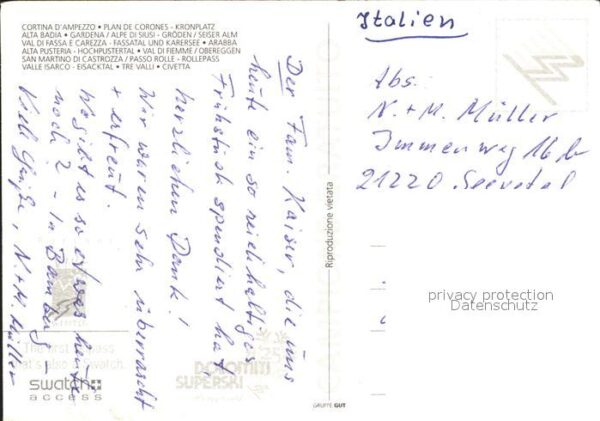 CORTINA D'AMPEZZO • PLAN DE CORONES - KRONPLATZ
ALTA BADIA • GARDENA / ALPE DI SIUSI - GRÖDEN / SEISER ALM
VAL DI FASSA E CAREZZA - FASSATAL UND KARERSEE • ARABBA
ALTA PUSTERIA - HOCHPUSTERTAL • VAL DI FIEMME / OBEREGGEN
SAN MARTINO DI CASTROZZA / PASSO ROLLE - ROLLEPASS
VALLE ISARCO - EISACKTAL • TRE VALLI • CIVETTA
Der Fam. Kaiser, die uns
heute ein so reichhaltiges
Frühstück spendiert hat,
herzlichen Dank!
Wir waren sehr überrascht
+ erfreut.
Wo gibt es so etwas heute
noch? - In Bamberg -
Viele Grüße, N. + M. Müller
The first ski pass
that's also a Swatch
swatch
access
DOLOMITI
SUPERSKI
25
Riproduzione vietata
GRUPPE GUT
Italien
Abs:
N. + M. Müller
Immenweg 16 b
21220 Seevetal
privacy protection
Datenschutz